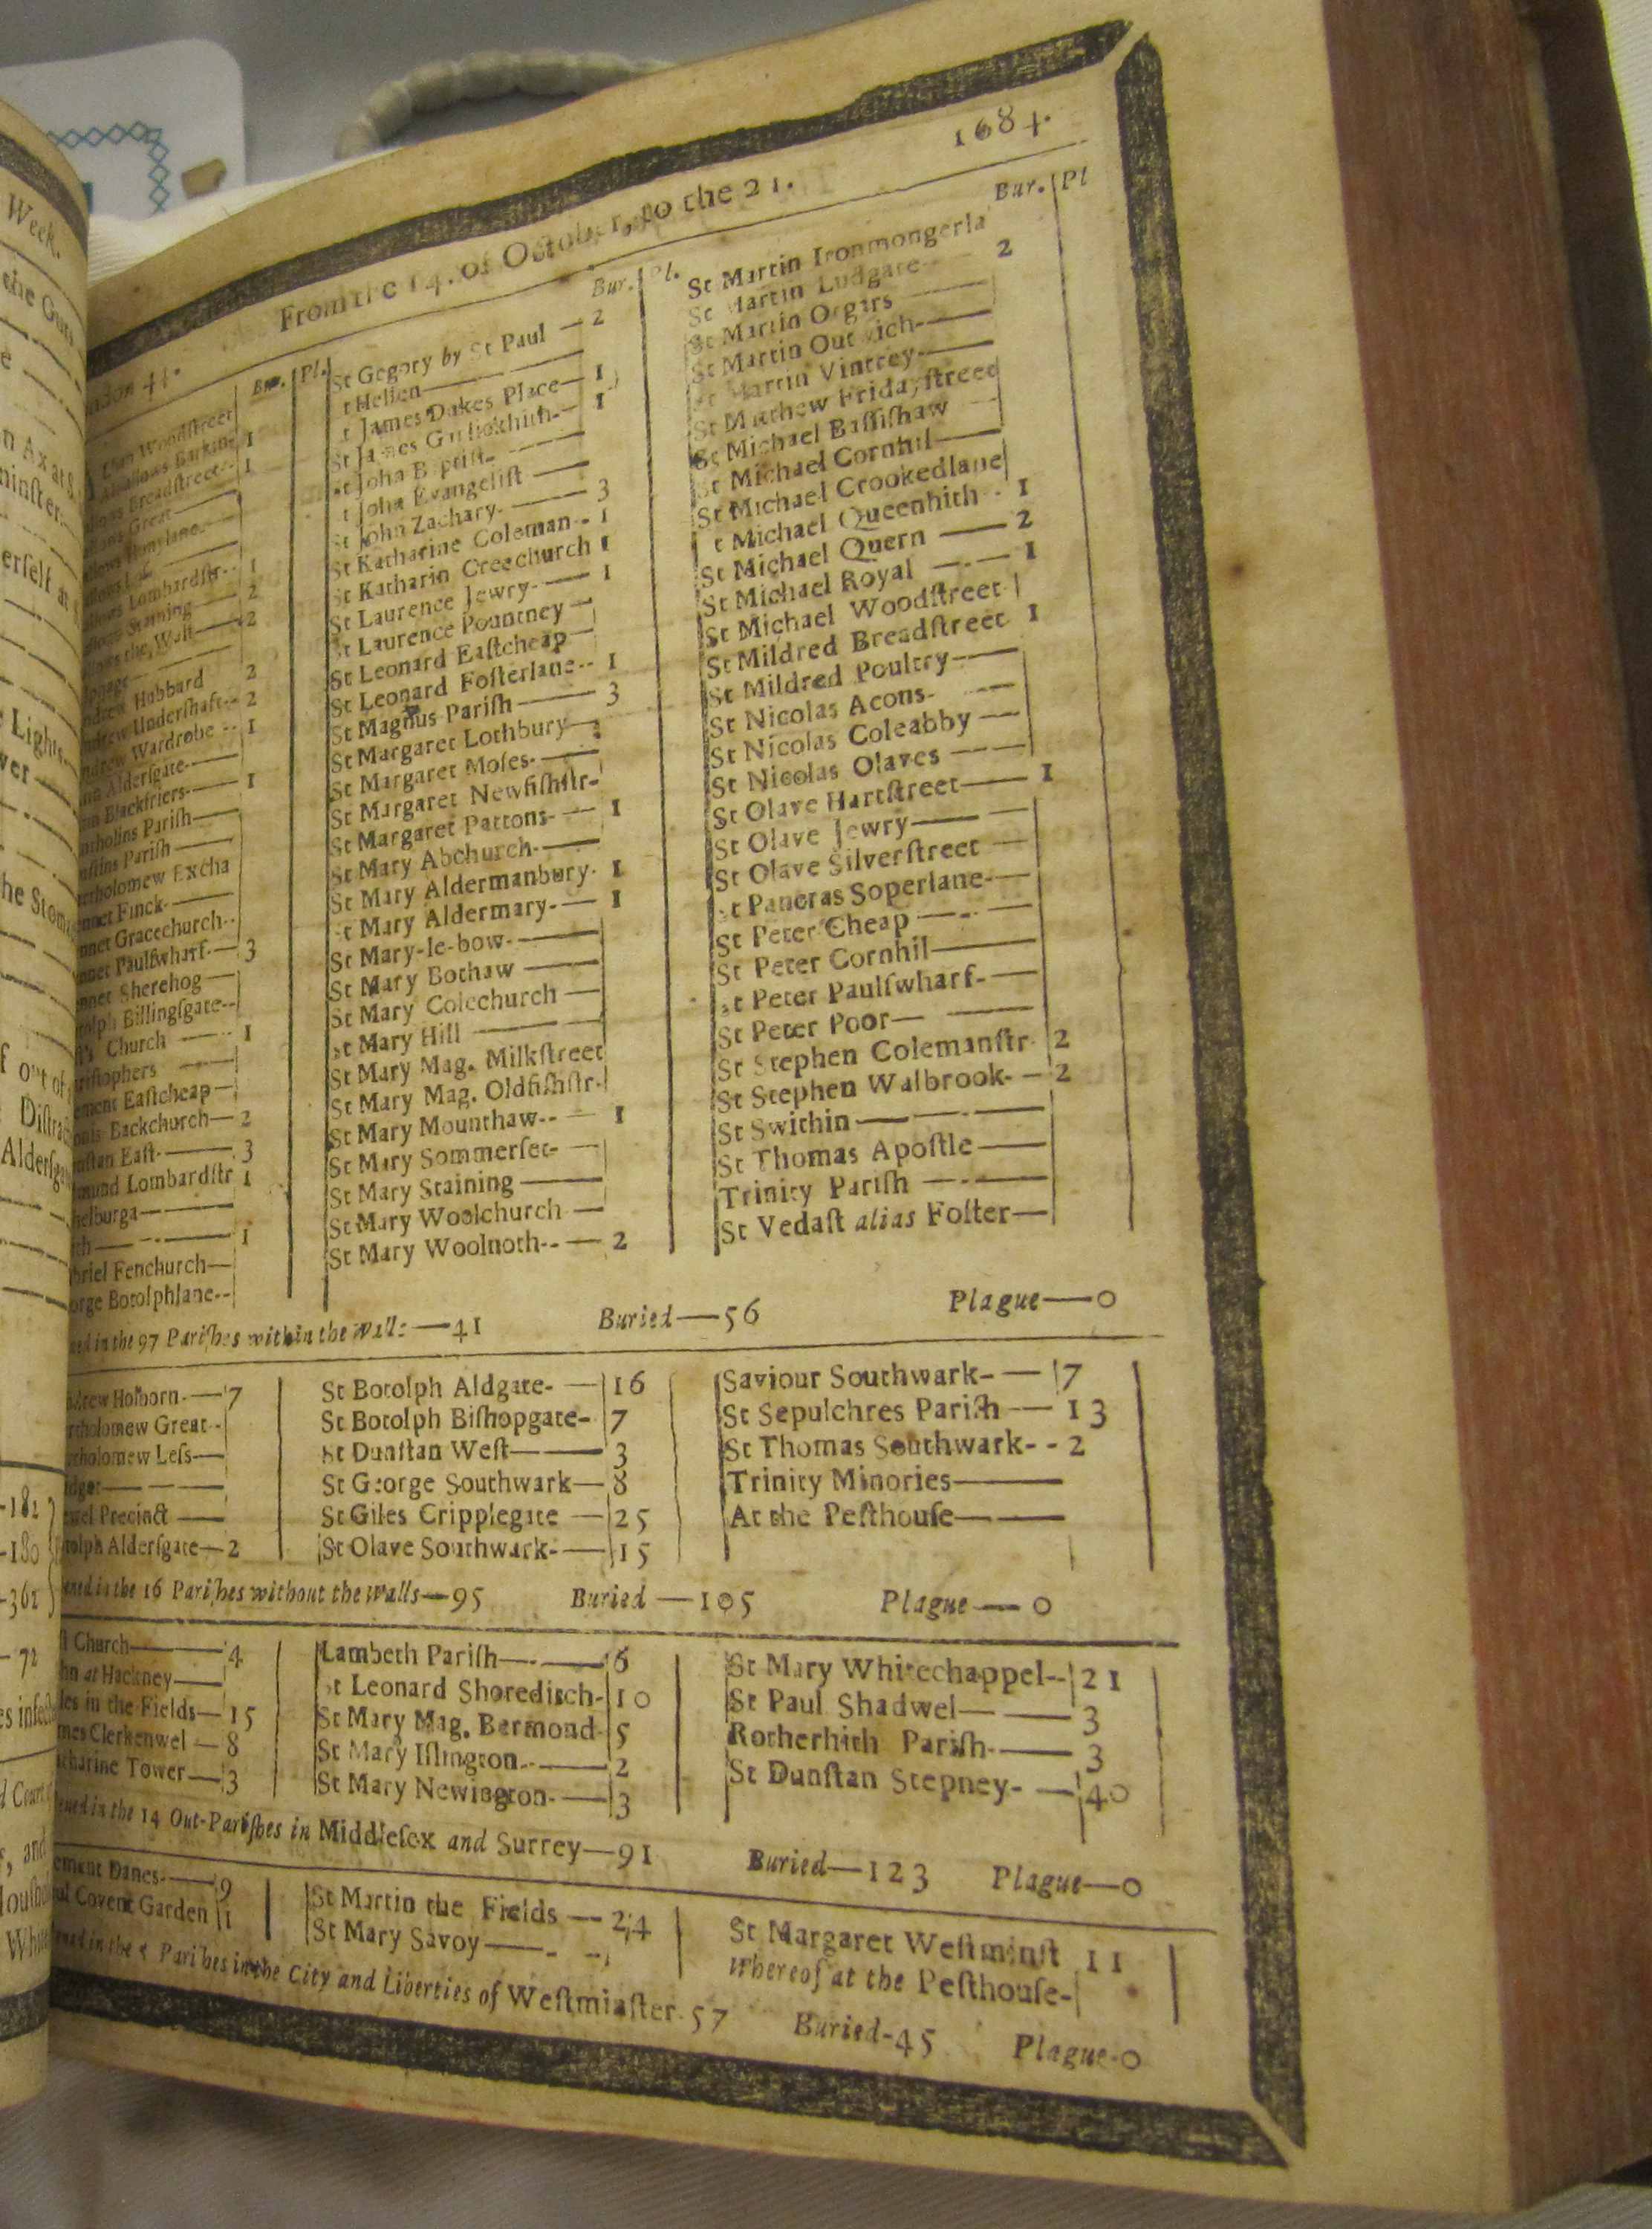 Week.
1684.
From the 14. of October, to the 21.
Bur. Pl.
Woodstreet
Allhallows Barking 1
Breadstreet 1
Great
Honylane
Lombardstr. 1
Staining 2
the Wall 2
Hubbard 2
Undershaft 2
Wardrobe 1
Aldersgate
Blackfriers 1
tholins Parish
stins Parish
tholomew Excha
Finck
Gracechurch
Paulswharf 3
Sherehog
olph Billingsgate
Church 1
ristophers
ment Eastcheap
Backchurch 2
stan East 3
mund Lombardstr 1
helburga
th 1
briel Fenchurch
orge Botolphlane
Bur. Pl.
St Gegory by St Paul — 2
t Hellen
t James Dukes Place — 1
St James Garlickhith — 1
St John Baptist
t John Evangelist
St John Zachary 3
St Katharine Coleman 1
St Katharin Creechurch 1
St Laurence Jewry 1
St Laurence Pountney
St Leonard Eastcheap
St Leonard Fosterlane 1
St Magnus Parish 3
St Margaret Lothbury
St Margaret Moses
St Margaret Newfishstr
St Margaret Pattons 1
St Mary Abchurch
St Mary Aldermanbury 1
St Mary Aldermary 1
St Mary-le-bow
St Mary Bothaw
St Mary Colechurch
St Mary Hill
St Mary Mag. Milkstreet
St Mary Mag. Oldfishstr.
St Mary Mounthaw 1
St Mary Sommerset
St Mary Staining
St Mary Woolchurch
St Mary Woolnoth 2
Bur. Pl
St Martin Ironmongerla
St Martin Ludgate 2
St Martin Orgars
St Martin Outwich
St Martin Vintrey
St Matthew Fridaystreet
St Michael Bassishaw
St Michael Cornhil
St Michael Crookedlane
t Michael Queenhith 1
St Michael Quern 2
St Michael Royal 1
St Michael Woodstreet
St Mildred Breadstreet 1
St Mildred Poultry
St Nicolas Acons
St Nicolas Coleabby
St Nicolas Olaves
St Olave Hartstreet 1
St Olave Jewry
St Olave Silverstreet
St Pancras Soperlane
St Peter Cheap
St Peter Cornhil
St Peter Paulswharf
St Peter Poor
St Stephen Colemanstr 2
St Stephen Walbrook 2
St Swithin
St Thomas Apostle
Trinity Parish
St Vedast alias Foster
in the 97 Parishes within the Walls — 41 Buried — 56 Plague — 0
drew Holborn 7
rtholomew Great
rtholomew Less
Precinct
tolph Aldersgate 2
St Botolph Aldgate 16
St Botolph Bishopgate 7
St Dunstan West 3
St George Southwark 8
St Giles Cripplegate 25
St Olave Southwark 15
Saviour Southwark 7
St Sepulchres Parish 13
St Thomas Southwark 2
Trinity Minories
At the Pesthouse
in the 16 Parishes without the Walls — 95 Buried — 105 Plague — 0
Church 4
at Hackney
les in the Fields 15
mes Clerkenwel 8
tharine Tower 3
Lambeth Parish 6
St Leonard Shoreditch 10
St Mary Mag. Bermond 5
St Mary Islington 2
St Mary Newington 3
St Mary Whitechappel 21
St Paul Shadwel 3
Rotherhith Parish 3
St Dunstan Stepney 40
in the 14 Out-Parishes in Middlesex and Surrey — 91 Buried — 123 Plague — 0
ement Danes 9
Covent Garden 1
St Martin the Fields 24
St Mary Savoy
St Margaret Westminst 11
whereof at the Pesthouse
in the 5 Parishes in the City and Liberties of Westminster 57 Buried-45 Plague-0